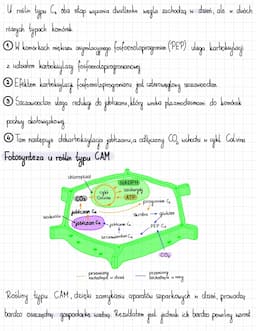 U roślin typu C₄ oba etapy wiązania dwutlenku węgla zachodzą w dzień, ale w dwóch
różnych typach komórek.
① W komórkach miękiszu asymilacyjnego fosfoenolopirogronian (PEP) ulega karboksylacji
z udziałem karboksylazy fosfoenolopirogronianowej
② Efektem karboksylacji fosfoenolopirogronianu jest czterowęglowy szczawiooctan
③ Szczawiooctan ulega redukcji do jabłczanu, który wnika plazmodesmami do komórek
pochwy okołowiązkowej.
④ Tam następuje dekarboksylacja jabłczanu, a odłączony CO₂ wchodzi w cykl Calvina
Fotosynteza u roślin typu CAM
chloroplast
cykl Calvina
ATP
CO₂
wakuola
jabłczan C₄
jabłczan C₄
pirogronian C₃
skrobia
glukoza
szczawiooctan C₄
PEP C₃
CO₂
przemiany zachodzące w dzień
przemiany zachodzące w nocy
Rośliny typu CAM, dzięki zamykaniu aparatów szparkowych w dzień, prowadzą
bardzo oszczędną gospodarkę wodną. Rezultatem jest jednak ich bardzo powolny wzrost